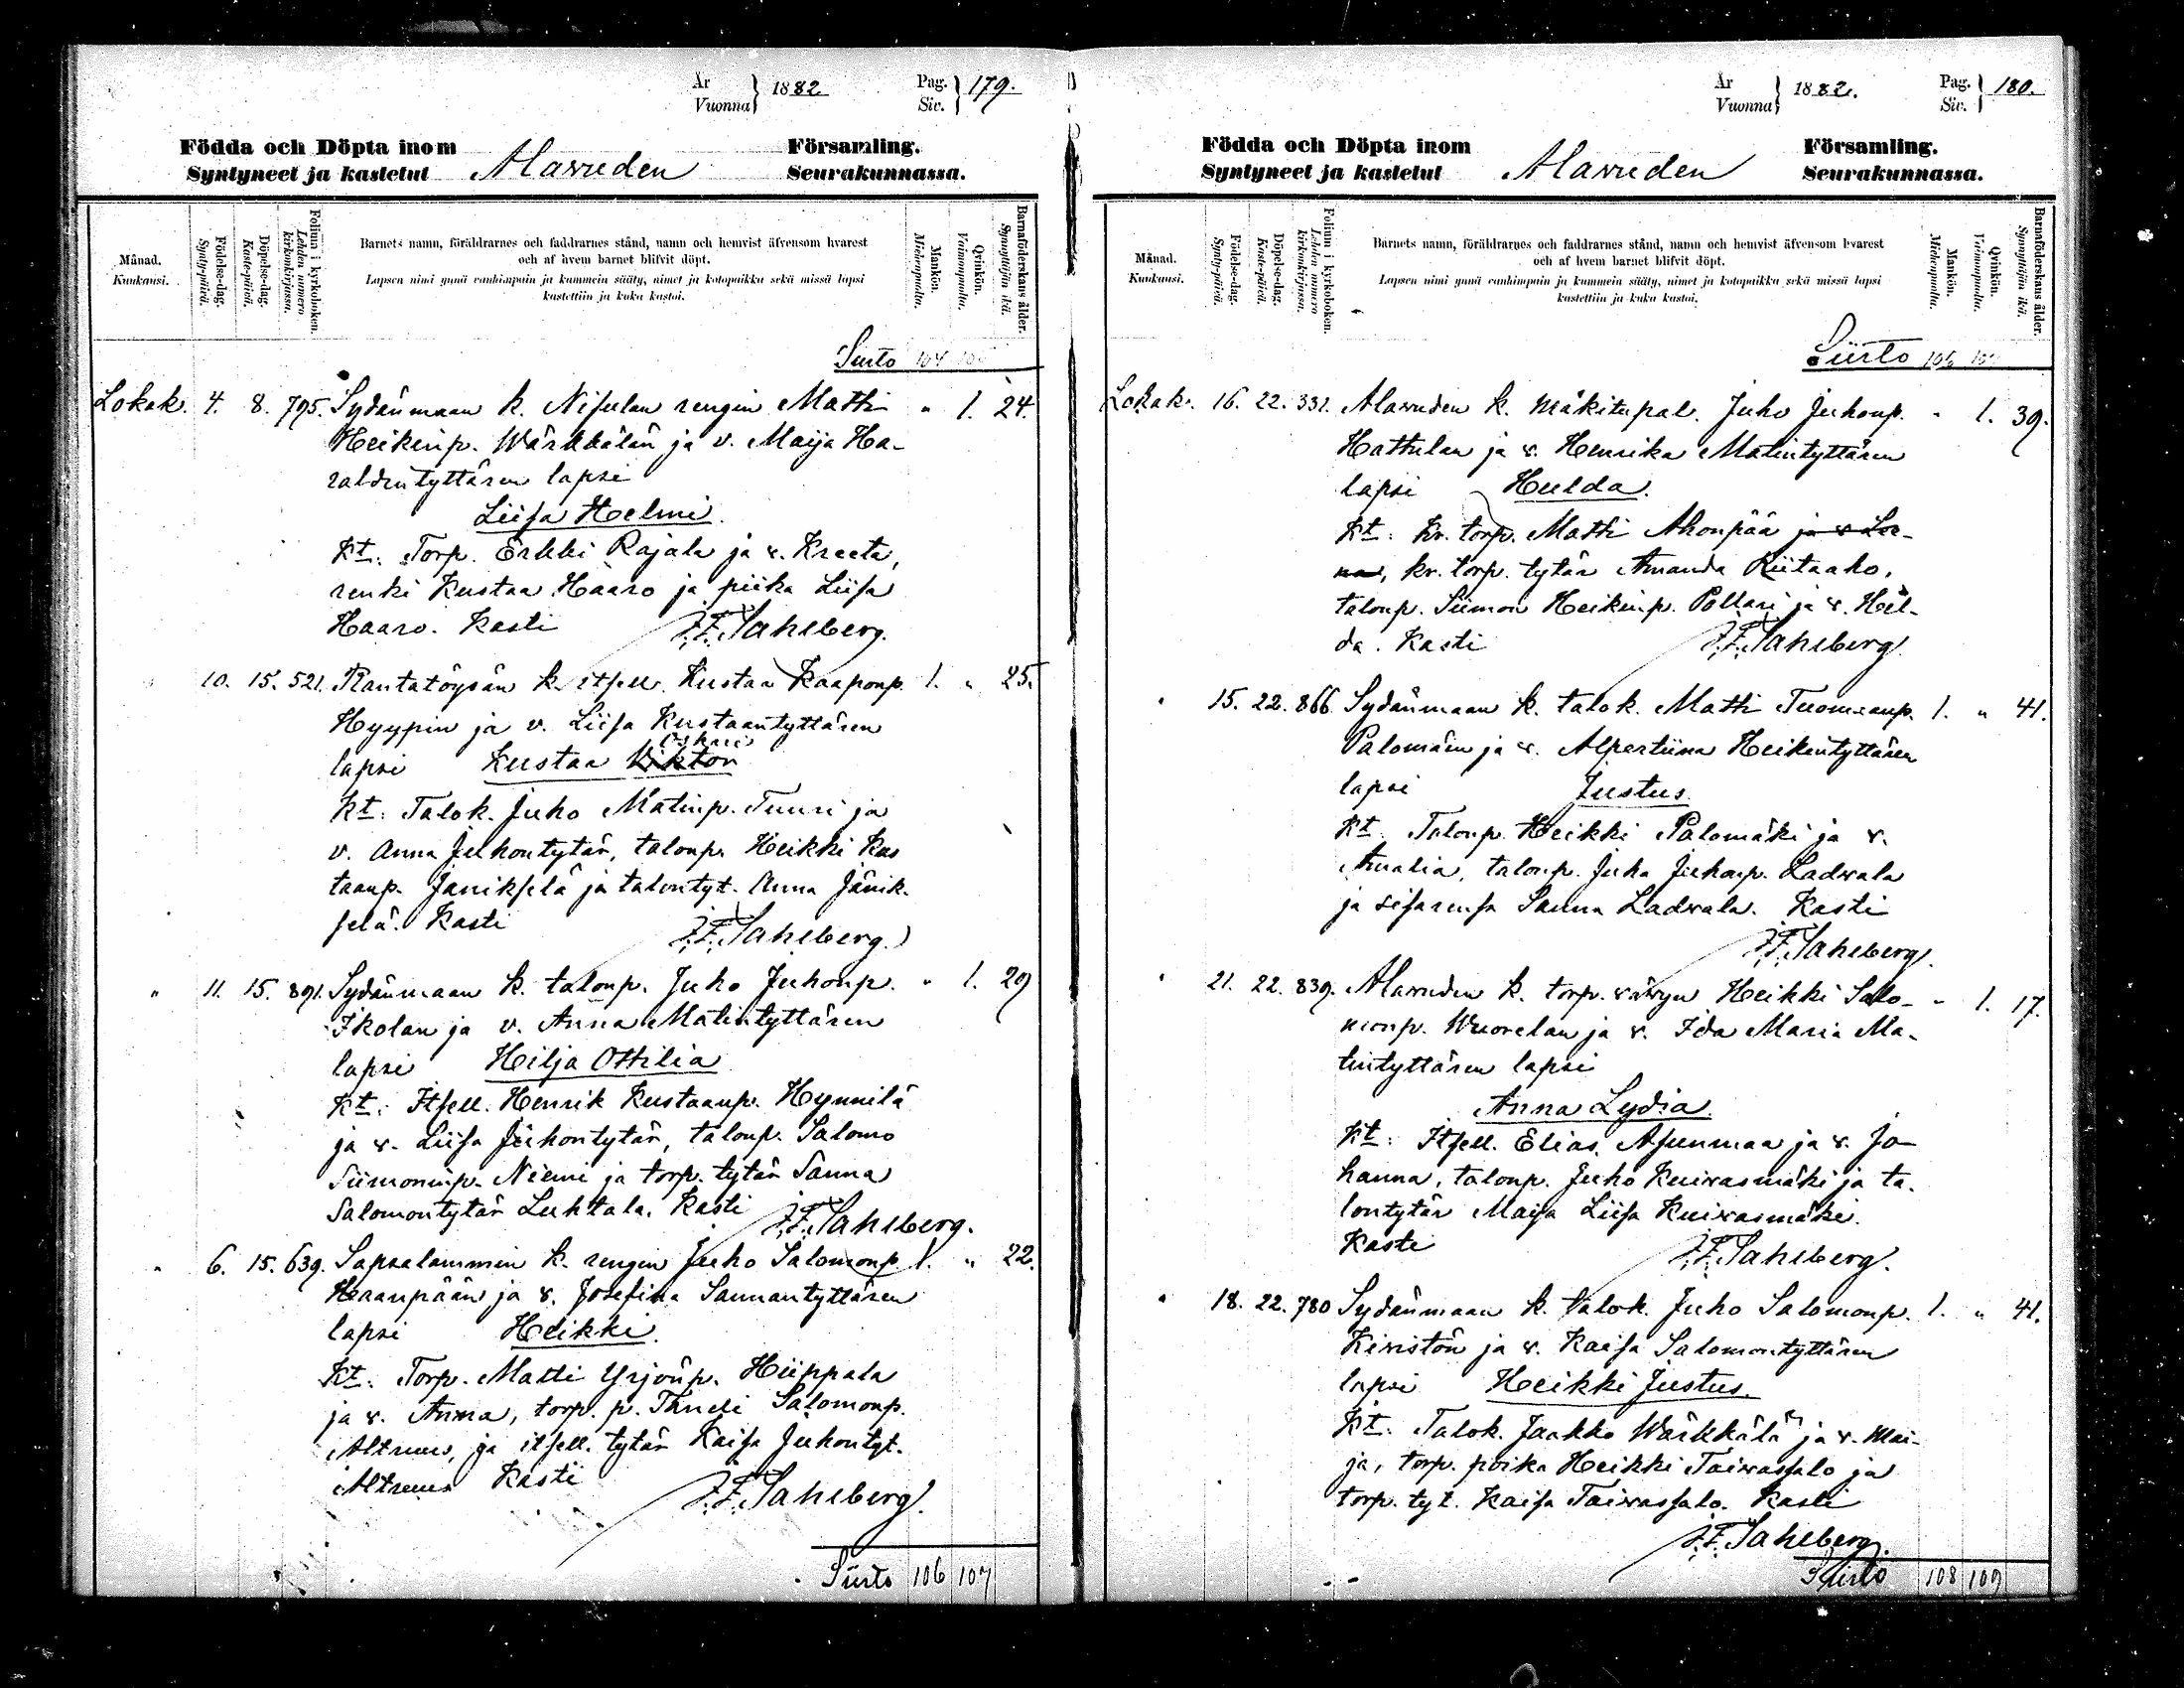 År
Vuonna } 1882
Pag.
Siv. } 179.
Födda och Döpta inom
Syntyneet ja kastetut
Alavuden
Församling.
Seurakunnassa.
Månad.
Kuukausi.
Födelse-dag.
Synty-päivä.
Döpelse-dag.
Kaste-päivä.
Folium i kyrkoboken.
Lehden numero kirkonkirjassa.
Barnets namn, föräldrarnes och faddrarnes stånd, namn och hemvist äfvensom hvarest
och af hvem barnet blifvit döpt.
Lapsen nimi ynnä vanhimpain ja kummein sääty, nimet ja kotopaikka sekä missä lapsi
kastettiin ja kuka kastoi.
Mankön.
Miehenpuolta.
Qvinkön.
Vaimonpuolta.
Barnaföderskans ålder.
Synnyttäjän ikä.
Siirto 104
Lokak. 4. 8. 795. Sydänmaan k. Nisulan rengin Matti " 1. 24.
Heikinp. Wärkkälän ja v. Maija Ha-
raldintyttären lapsi
Liisa Helmi.
Kt: Torp. Erkki Rajala ja v. Kreeta,
renki Kustaa Haaro ja piika Liisa
Haaro. Kasti J.F. Sahlberg.
10. 15. 521. Rantatöysän k. itsell. Kustaa Kaaponp. 1. " 25.
Hyypin ja v. Liisa Kustaantyttären
Oskari
lapsi Kustaa Viktor
Kt: Talok. Juho Matinp. Tuuri ja
v. Anna Juhontytär, talonp. Heikki Kus
taanp. Jänikselä ja talontyt. Anna Jänik-
selä. Kasti J.F. Sahlberg.
" 11. 15. 891. Sydänmaan k. talonp. Juho Juhonp. " 1. 29
Ikolan ja v. Anna Matintyttären
lapsi Hilja Ottilia
Kt: Itsell. Henrik Kustaanp. Hynnilä
ja v. Liisa Juhontytär, talonp. Salomo
Siimoninp. Niemi ja torp. tytär Sanna
Salomontytär Luhtala. Kasti J.F. Sahlberg.
" 6. 15. 639. Sapsalammin k. rengin Juho Salomonp. 1. " 22.
Haanpään ja v. Josefina Sannantyttären
lapsi Heikki.
Kt: Torp. Matti Yrjönp. Hiippala
ja v. Anna, torp. p. Taneli Salomonp.
ja itsell. tytär Kaisa Juhontyt.
Kasti J.F. Sahlberg.
Siirto 106 107
År
Vuonna } 1882.
Pag.
Siv. } 180.
Födda och Döpta inom
Syntyneet ja kastetut
Alavuden
Församling.
Seurakunnassa.
Månad.
Kuukausi.
Födelse-dag.
Synty-päivä.
Döpelse-dag.
Kaste-päivä.
Folium i kyrkoboken.
Lehden numero kirkonkirjassa.
Barnets namn, föräldrarnes och faddrarnes stånd, namn och hemvist äfvensom hvarest
och af hvem barnet blifvit döpt.
Lapsen nimi ynnä vanhimpain ja kummein sääty, nimet ja kotopaikka sekä missä lapsi
kastettiin ja kuka kastoi.
Mankön.
Miehenpuolta.
Qvinkön.
Vaimonpuolta.
Barnaföderskans ålder.
Synnyttäjän ikä.
Siirto 106 107
Lokak. 16. 22. 331. Alavuden k. mäkitupal. Juho Juhonp. " 1. 39.
Hattulan ja v. Henrika Matintyttären
lapsi Hulda.
Kt: Kr. torp. Matti Ahonpää ja v Lee-
na, kr. torp. tytär Amanda Riitaaho,
talonp. Siimon Heikinp. Pollari ja v. Hil-
da. Kasti J.F. Sahlberg
" 15. 22. 866. Sydänmaan k. talok. Matti Tuomaanp. 1. " 41.
Palomäen ja v. Alpertiina Heikintyttären
lapsi Justus.
Kt: Talonp. Heikki Palomäki ja v.
Amalia, talonp. Juha Juhanp. Ladvala
ja sisarensa Sanna Ladvala. Kasti
J.F. Sahlberg.
" 21. 22. 839. Alavuden k. torp. vävyn Heikki Salo- " 1. 17.
monp. Wuorelan ja v. Ida Maria Ma-
tintyttären lapsi
Anna Lydia.
Kt: Itsell. Elias Asunmaa ja v. Jo-
hanna, talonp. Juho Kuivasmäki ja ta-
lontytär Maija Liisa Kuivasmäki.
Kasti J.F. Sahlberg.
" 18. 22. 780 Sydänmaan k. talok. Juho Salomonp. 1. " 41.
Kiviston ja v. Kaisa Salomontyttären
lapsi Heikki Justus.
Kt: Talok. Jaakko Wärkkälä ja v. Mai-
ja, torp. poika Heikki Taivassalo ja
torp. tyt. Kaisa Taivassalo. Kasti
J.F. Sahlberg.
Siirto 108 109